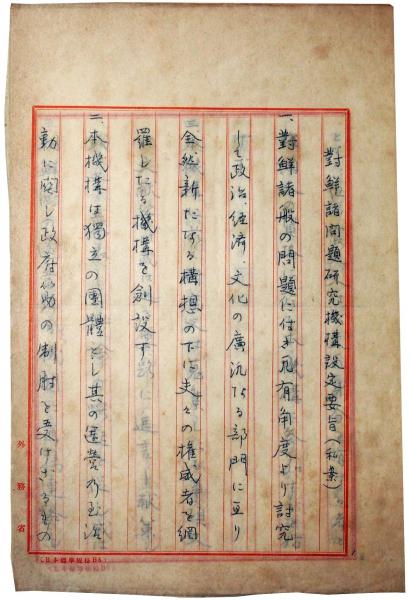 對鮮諸問題研究機構設定要旨(私案)
一、對鮮諸般の問題に付き凡有角度より討究
して政治、経済、文化の廣汎なる部門に亘り
全然新たなる構想の下に夫々の権威者を網
羅したる機構を創設す
二、本機構は獨立の團體とし其の運営乃至活
動に関し政府の制肘を受けざるもの
外務省